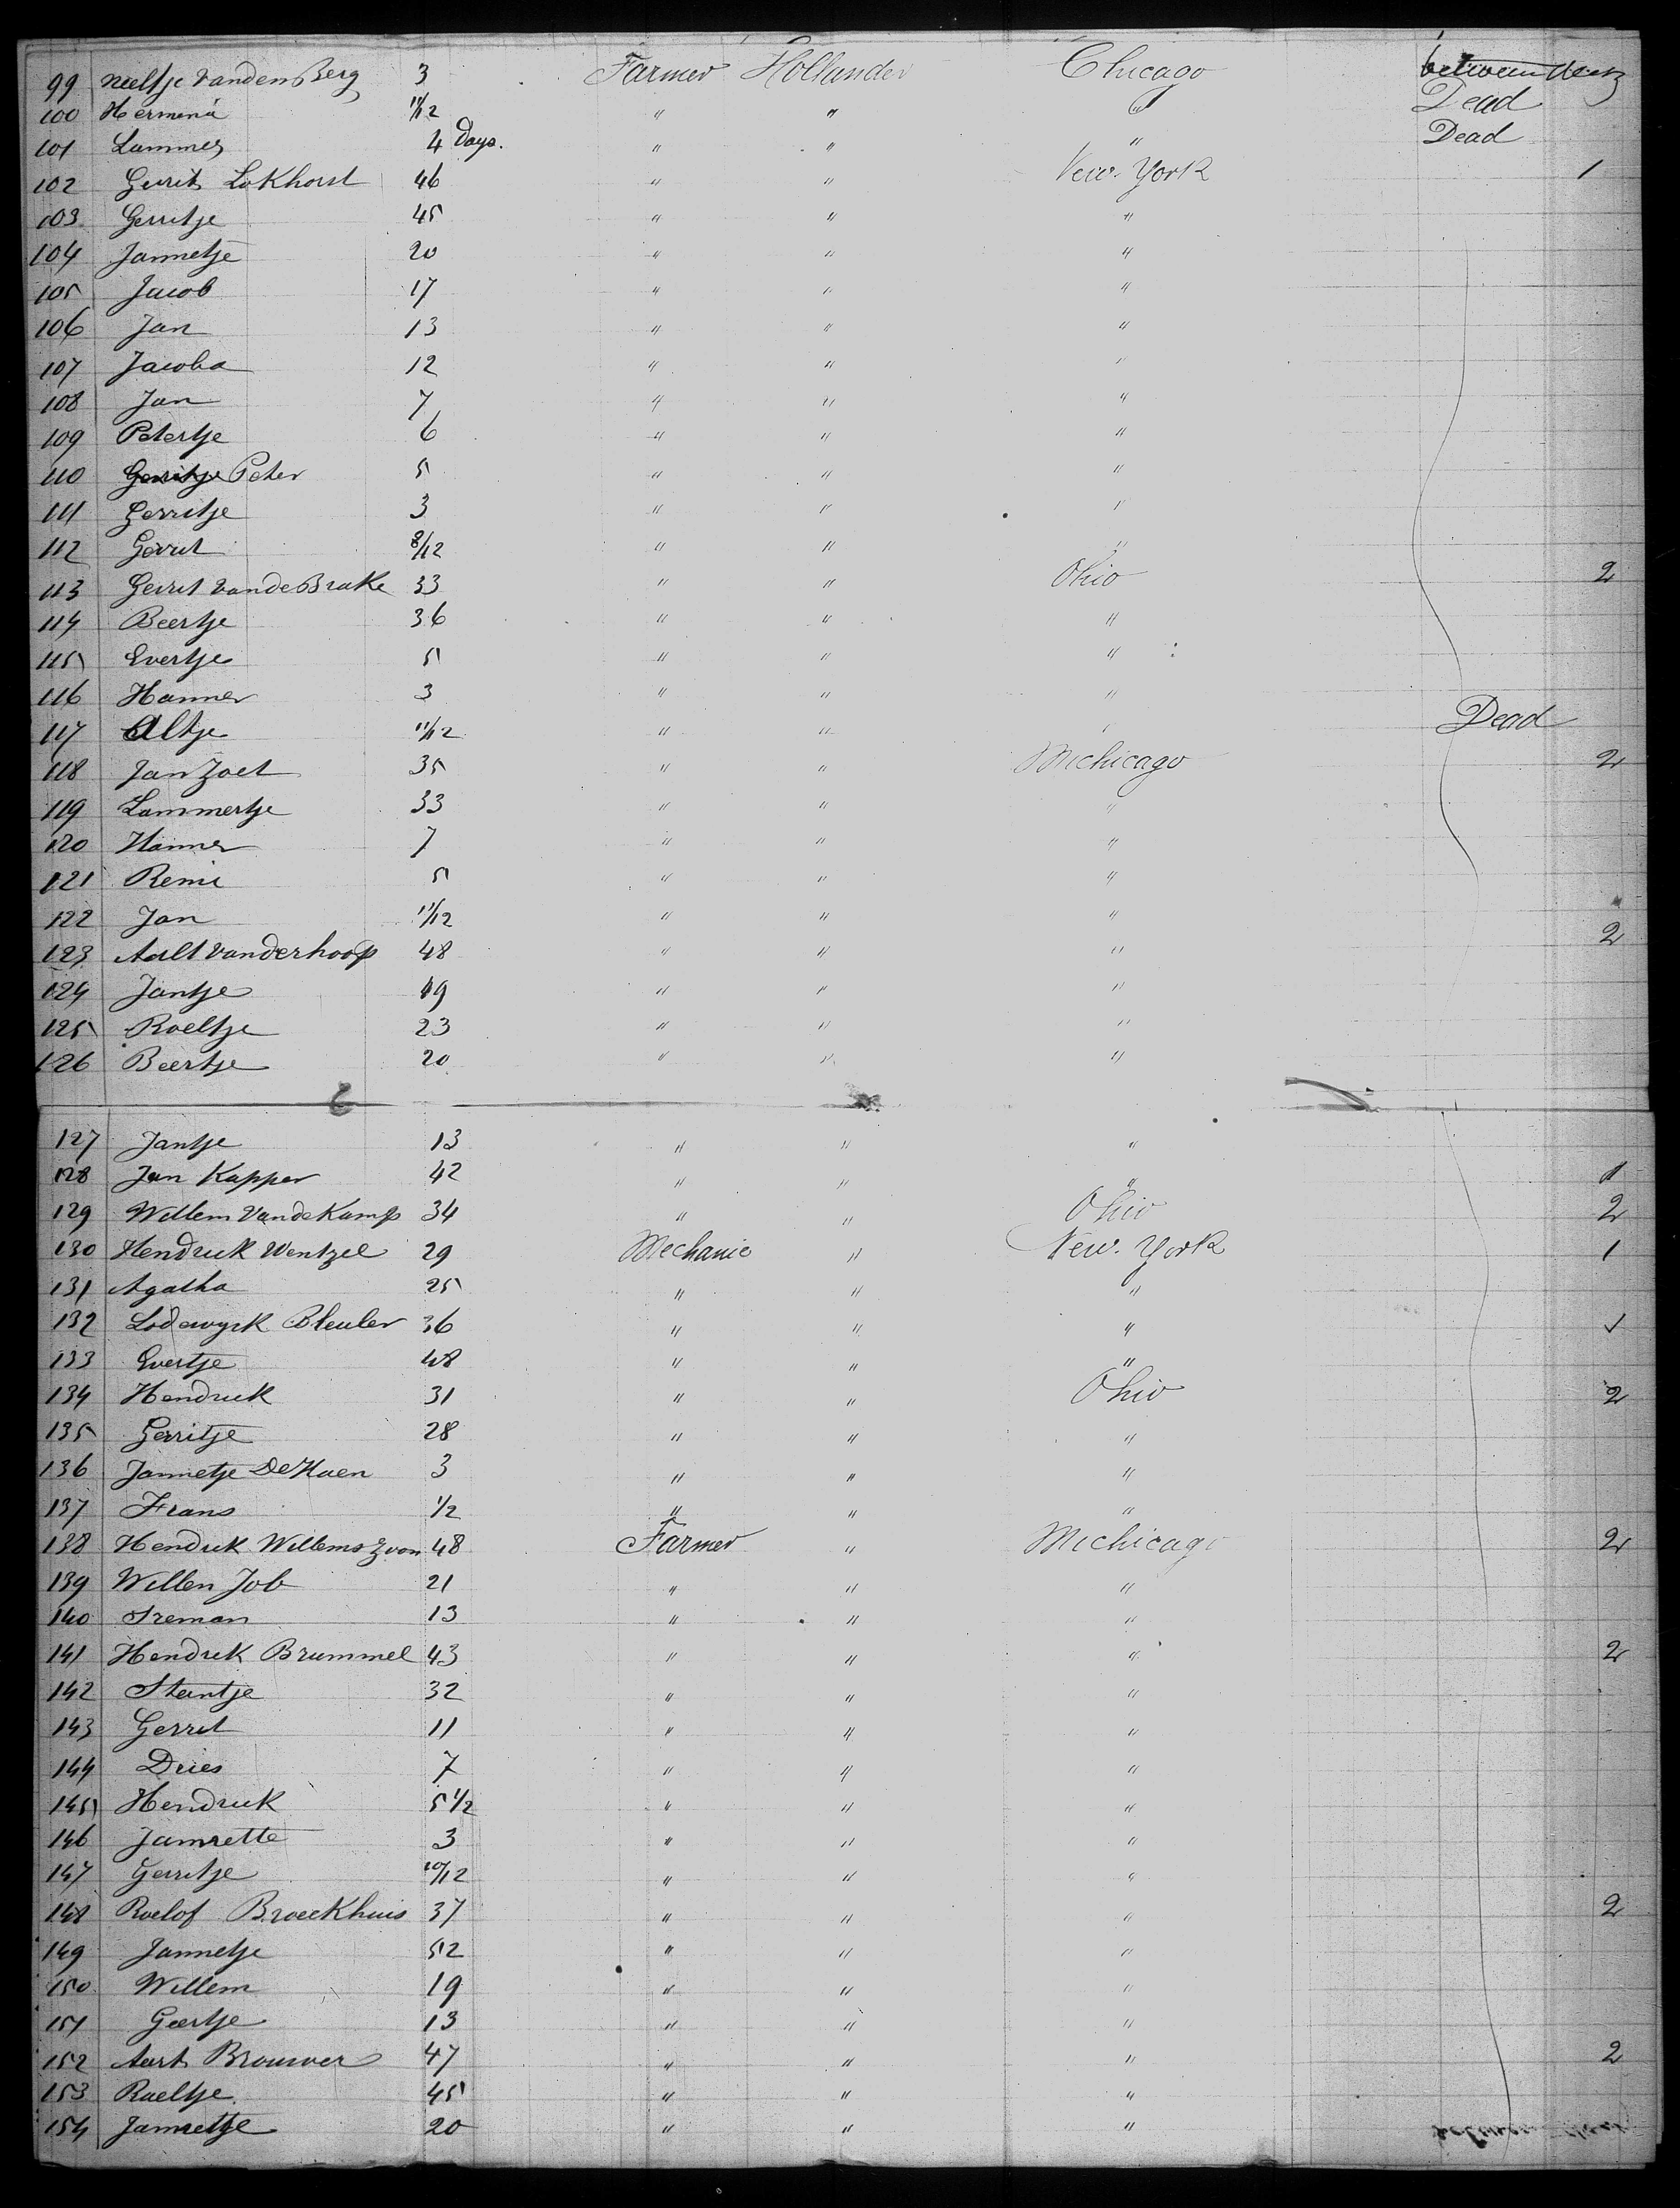 99 Neeltje VandenBerg 3 Farmer Hollander Chicago between decks
100 Hermina 11/12 " " " Dead
101 Lammes 4 Days. " " " Dead
102 Gerrit Lokhorst 46 " " New-York 1
103 Gerritje 45 " " "
104 Jannetje 20 " " "
105 Jacob 17 " " "
106 Jan 13 " " "
107 Jacoba 12 " " "
108 Jan 7 " " "
109 Petertje 6 " " "
110 Gerritje Peter 5 " " "
111 Gerritje 3 " " "
112 Gerrit 8/12 " " "
113 Gerrit VandeBrake 33 " " Ohio 2
114 Beertje 36 " " "
115 Evertje 5 " " "
116 Hannes 3 " " "
117 Altje 11/12 " " " Dead
118 Jan Zoet 35 " " Michicago 2
119 Lammertje 33 " " "
120 Hannes 7 " " "
121 Remi 5 " " "
122 Jan 11/12 " " "
123 Aalt Vanderhoop 48 " " " 2
124 Jantje 49 " " "
125 Roeltje 23 " " "
126 Beertje 20 " " "
127 Jantje 13 " " "
128 Jan Kapper 42 " " " 1
129 Willem VandeKamp 34 " " Ohio 2
130 Hendrik Wentzel 29 Mechanic " New-York 1
131 Agatha 25 " " "
132 Lodewyck Bleuler 36 " " " ✓
133 Evertje 48 " " "
134 Hendrik 31 " " Ohio 2
135 Gerritje 28 " " "
136 Jannetje DeHaen 3 " " "
137 Frans 1/2 " " "
138 Hendrik Willems Zoon 48 Farmer " Michicago 2
139 Willen Job 21 " " "
140 Freman 13 " " "
141 Hendrik Brummel 43 " " " 2
142 Stantje 32 " " "
143 Gerrit 11 " " "
144 Dries 7 " " "
145 Hendrik 5 1/2 " " "
146 Jamrette 3 " " "
147 Gerritje 10/12 " " "
148 Roelof Broeckhuis 37 " " " 2
149 Jannetje 52 " " "
150 Willem 19 " " "
151 Geertje 13 " " "
152 Aart Brouwer 47 " " " 2
153 Roeltje 45 " " "
154 Jannetje 20 " " "